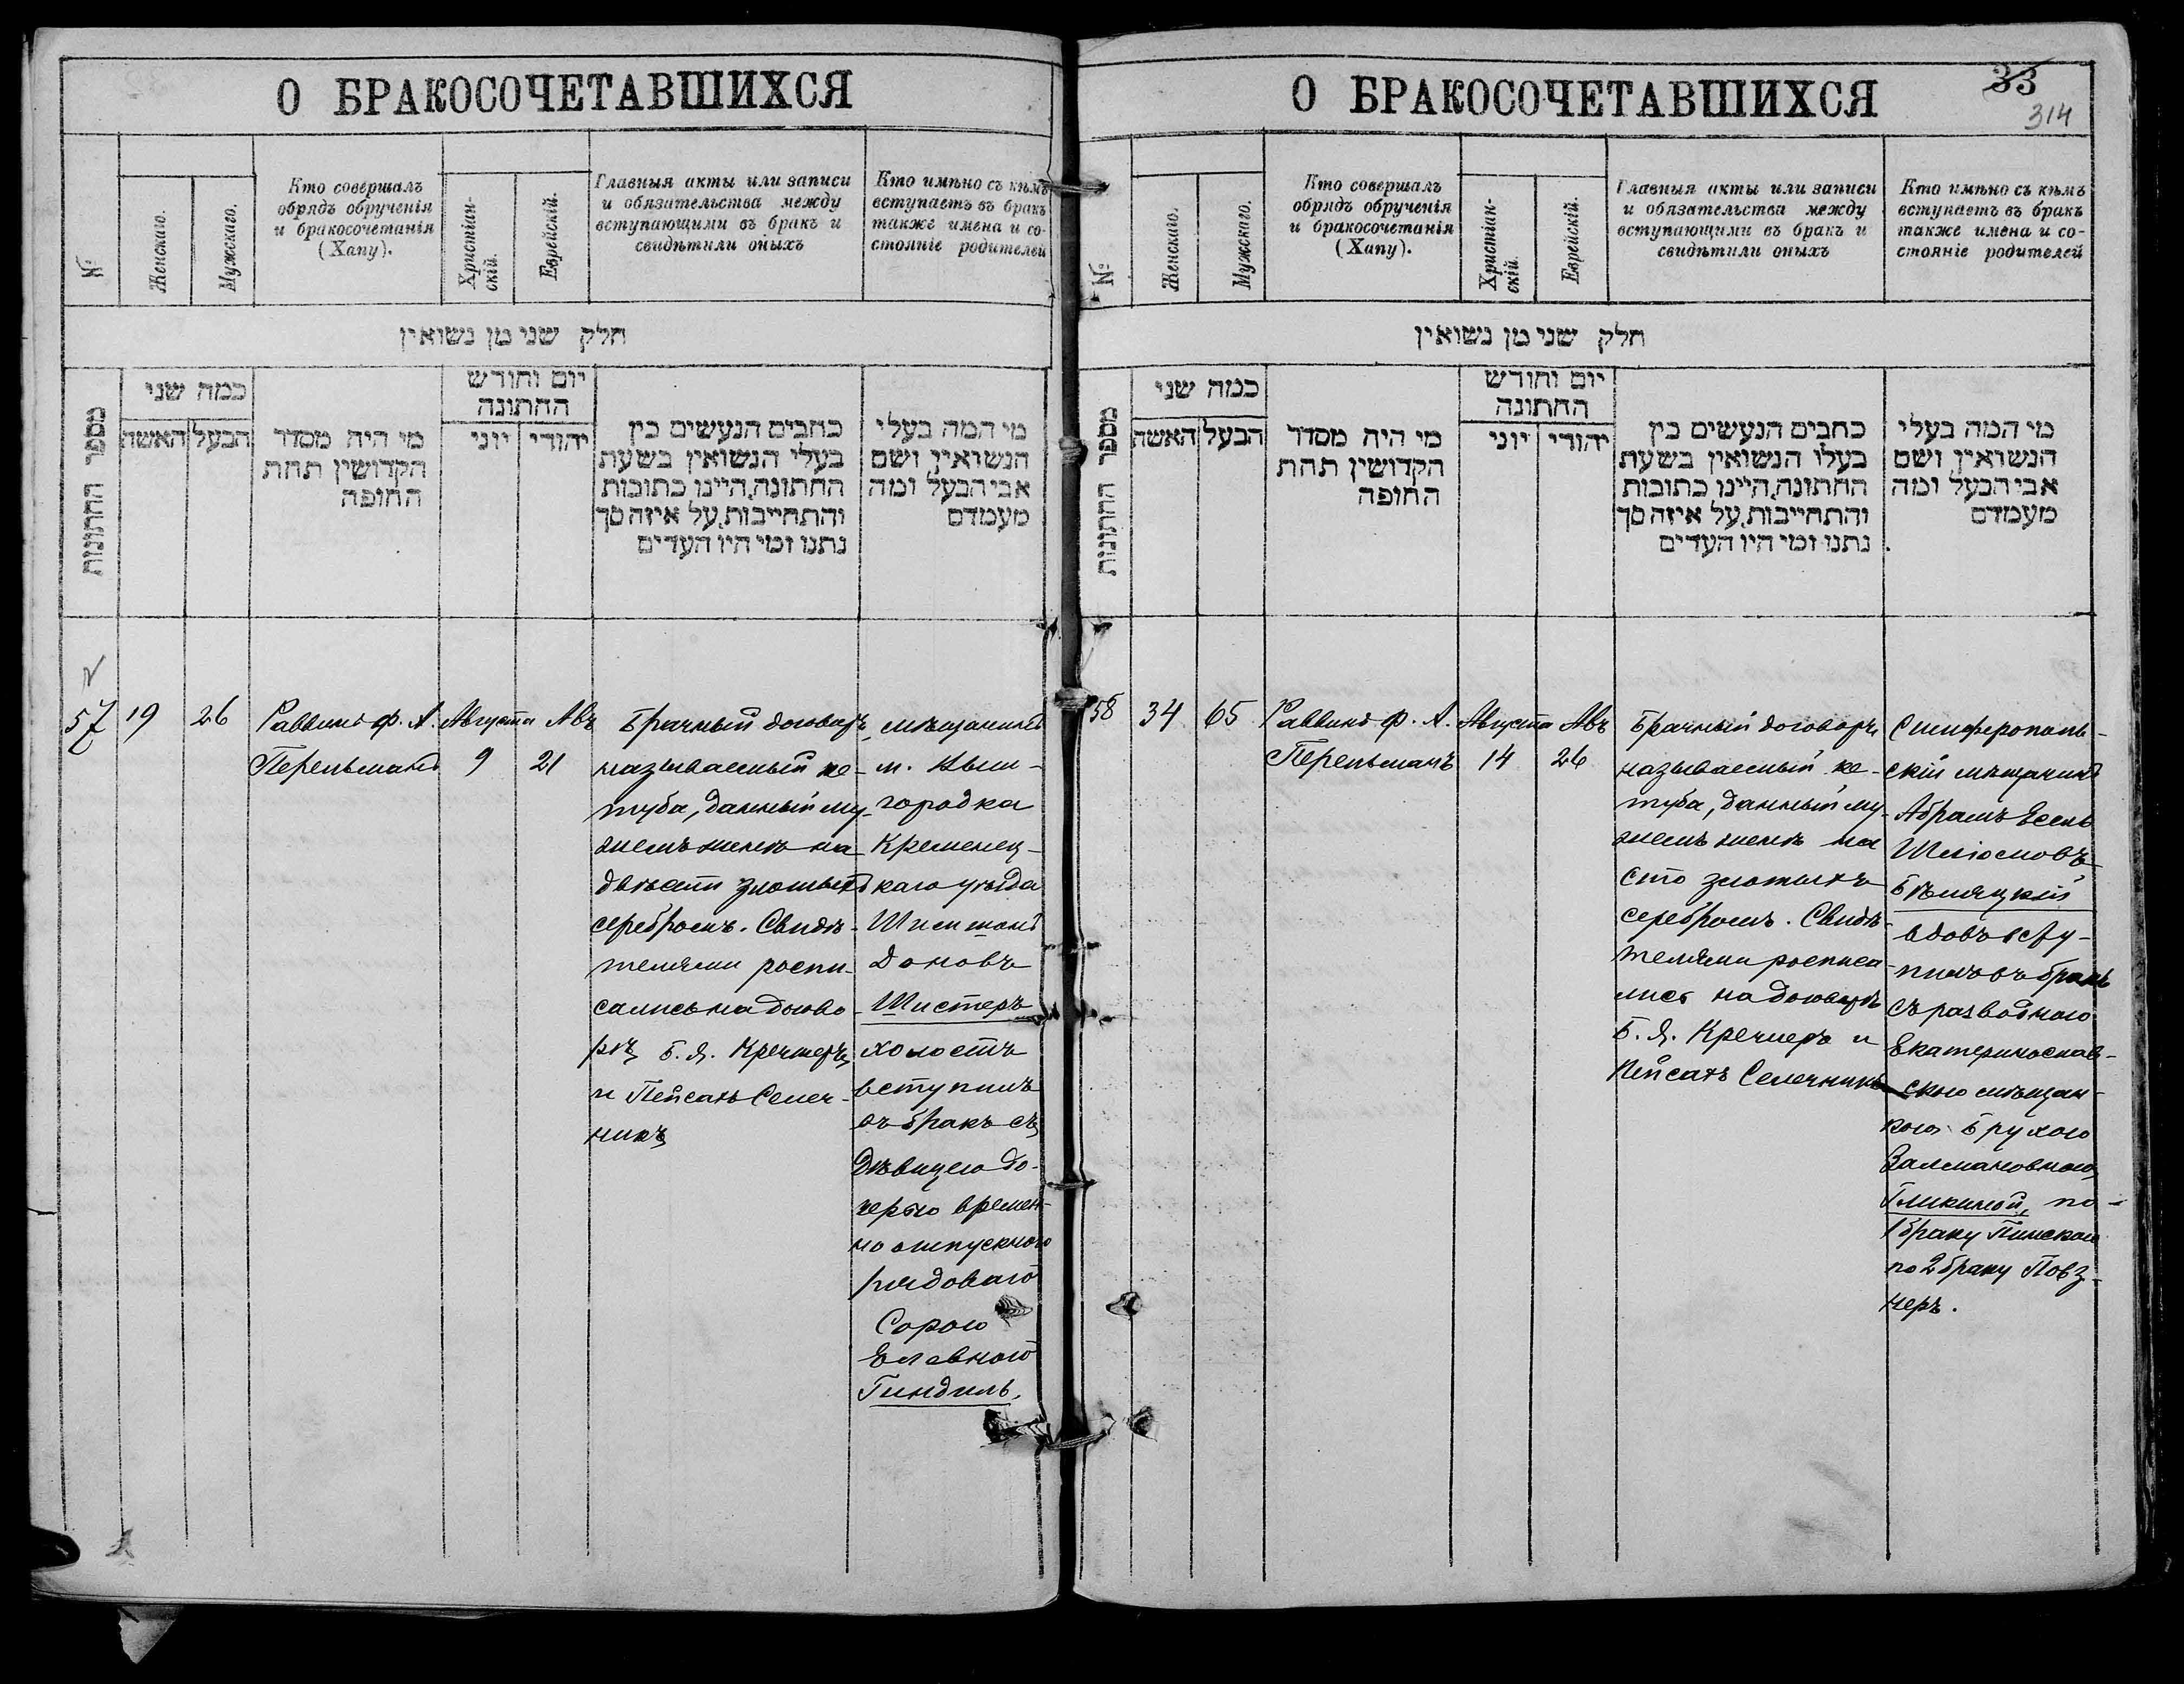 О БРАКОСОЧЕТАВШИХСЯ
№
Женскаго.
Мужскаго.
Кто совершалъ
обрядъ обрученія
и бракосочетанія
(Хапу).
Христіан-
скій.
Еврейскій.
Главныя акты или записи
и обязательства между
вступающими въ бракъ и
свидѣтили оныхъ
Кто имѣно съ кѣмъ
вступаетъ въ бракъ
также имена и со-
стояніе родителей
חלק שני מן נשואין
מספר החתונות
כמה שני
האשה
הבעל
מי היה מסדר
הקדושין תחת
החופה
יום וחודש
החתונה
יוני
יהודי
כתבים הנעשים בין
בעלי הנשואין בשעת
החתונה, היינו כתובות
והתחייבות, על איזה סך
נתנו ומי היו העדים
מי המה בעלי
הנשואין, ושם
אבי הבעל, ומה
מעמדם
57
19
26
Раввинъ Ф. А.
Перельманъ
Августа
9
Авъ
21
Брачный договоръ,
называемый ке-
туба, данный му-
жемъ женѣ на
двѣсти злотыхъ
серебромъ. Свидѣ-
телями роспи-
сались на догово-
рѣ Б. Я. Кречмеръ
и Пейсахъ Селеч-
никъ
мѣщанинъ
м.
городка
Кременец-
каго уѣзда
Шимшонъ
Доновъ
Шистеръ
холостъ
вступилъ
въ бракъ съ
Дѣвицею до-
черью времен-
но отпускного
рядоваго
Сорою
Елевною
Гиндиль.
О БРАКОСОЧЕТАВШИХСЯ
33
314
№
Женскаго.
Мужскаго.
Кто совершалъ
обрядъ обрученія
и бракосочетанія
(Хапу).
Христіан-
скій.
Еврейскій.
Главныя акты или записи
и обязательства между
вступающими въ бракъ и
свидѣтили оныхъ
Кто имѣно съ кѣмъ
вступаетъ въ бракъ
также имена и со-
стояніе родителей
חלק שני מן נשואין
מספר החתונות
כמה שני
האשה
הבעל
מי היה מסדר
הקדושין תחת
החופה
יום וחודש
החתונה
יוני
יהודי
כתבים הנעשים בין
בעלו הנשואין בשעת
החתונה, היינו כתובות
והתחייבות, על איזה סך
נתנו ומי היו העדים
מי המה בעלי
הנשואין, ושם
אבי הבעל, ומה
מעמדם
58
34
65
Раввинъ Ф. А.
Перельманъ
Августа
14
Авъ
26
Брачный договоръ
называемый ке-
туба, данный му-
жемъ женѣ на
сто злотыхъ
серебромъ. Свидѣ-
телями росписа-
лись на договорѣ
Б. Я. Кречмеръ и
Пейсахъ Селечникъ
Симферополь-
скій мѣщанинъ
Абрамъ Есель
Шліомовъ
Бѣляцкій
вдовъ всту-
пилъ въ бракъ
съ разводною
Екатеринослав-
скою мѣщан-
кою Брухою
Залмановною
Гликиной, по
1 браку Пинской
по 2 браку Повз-
неръ.